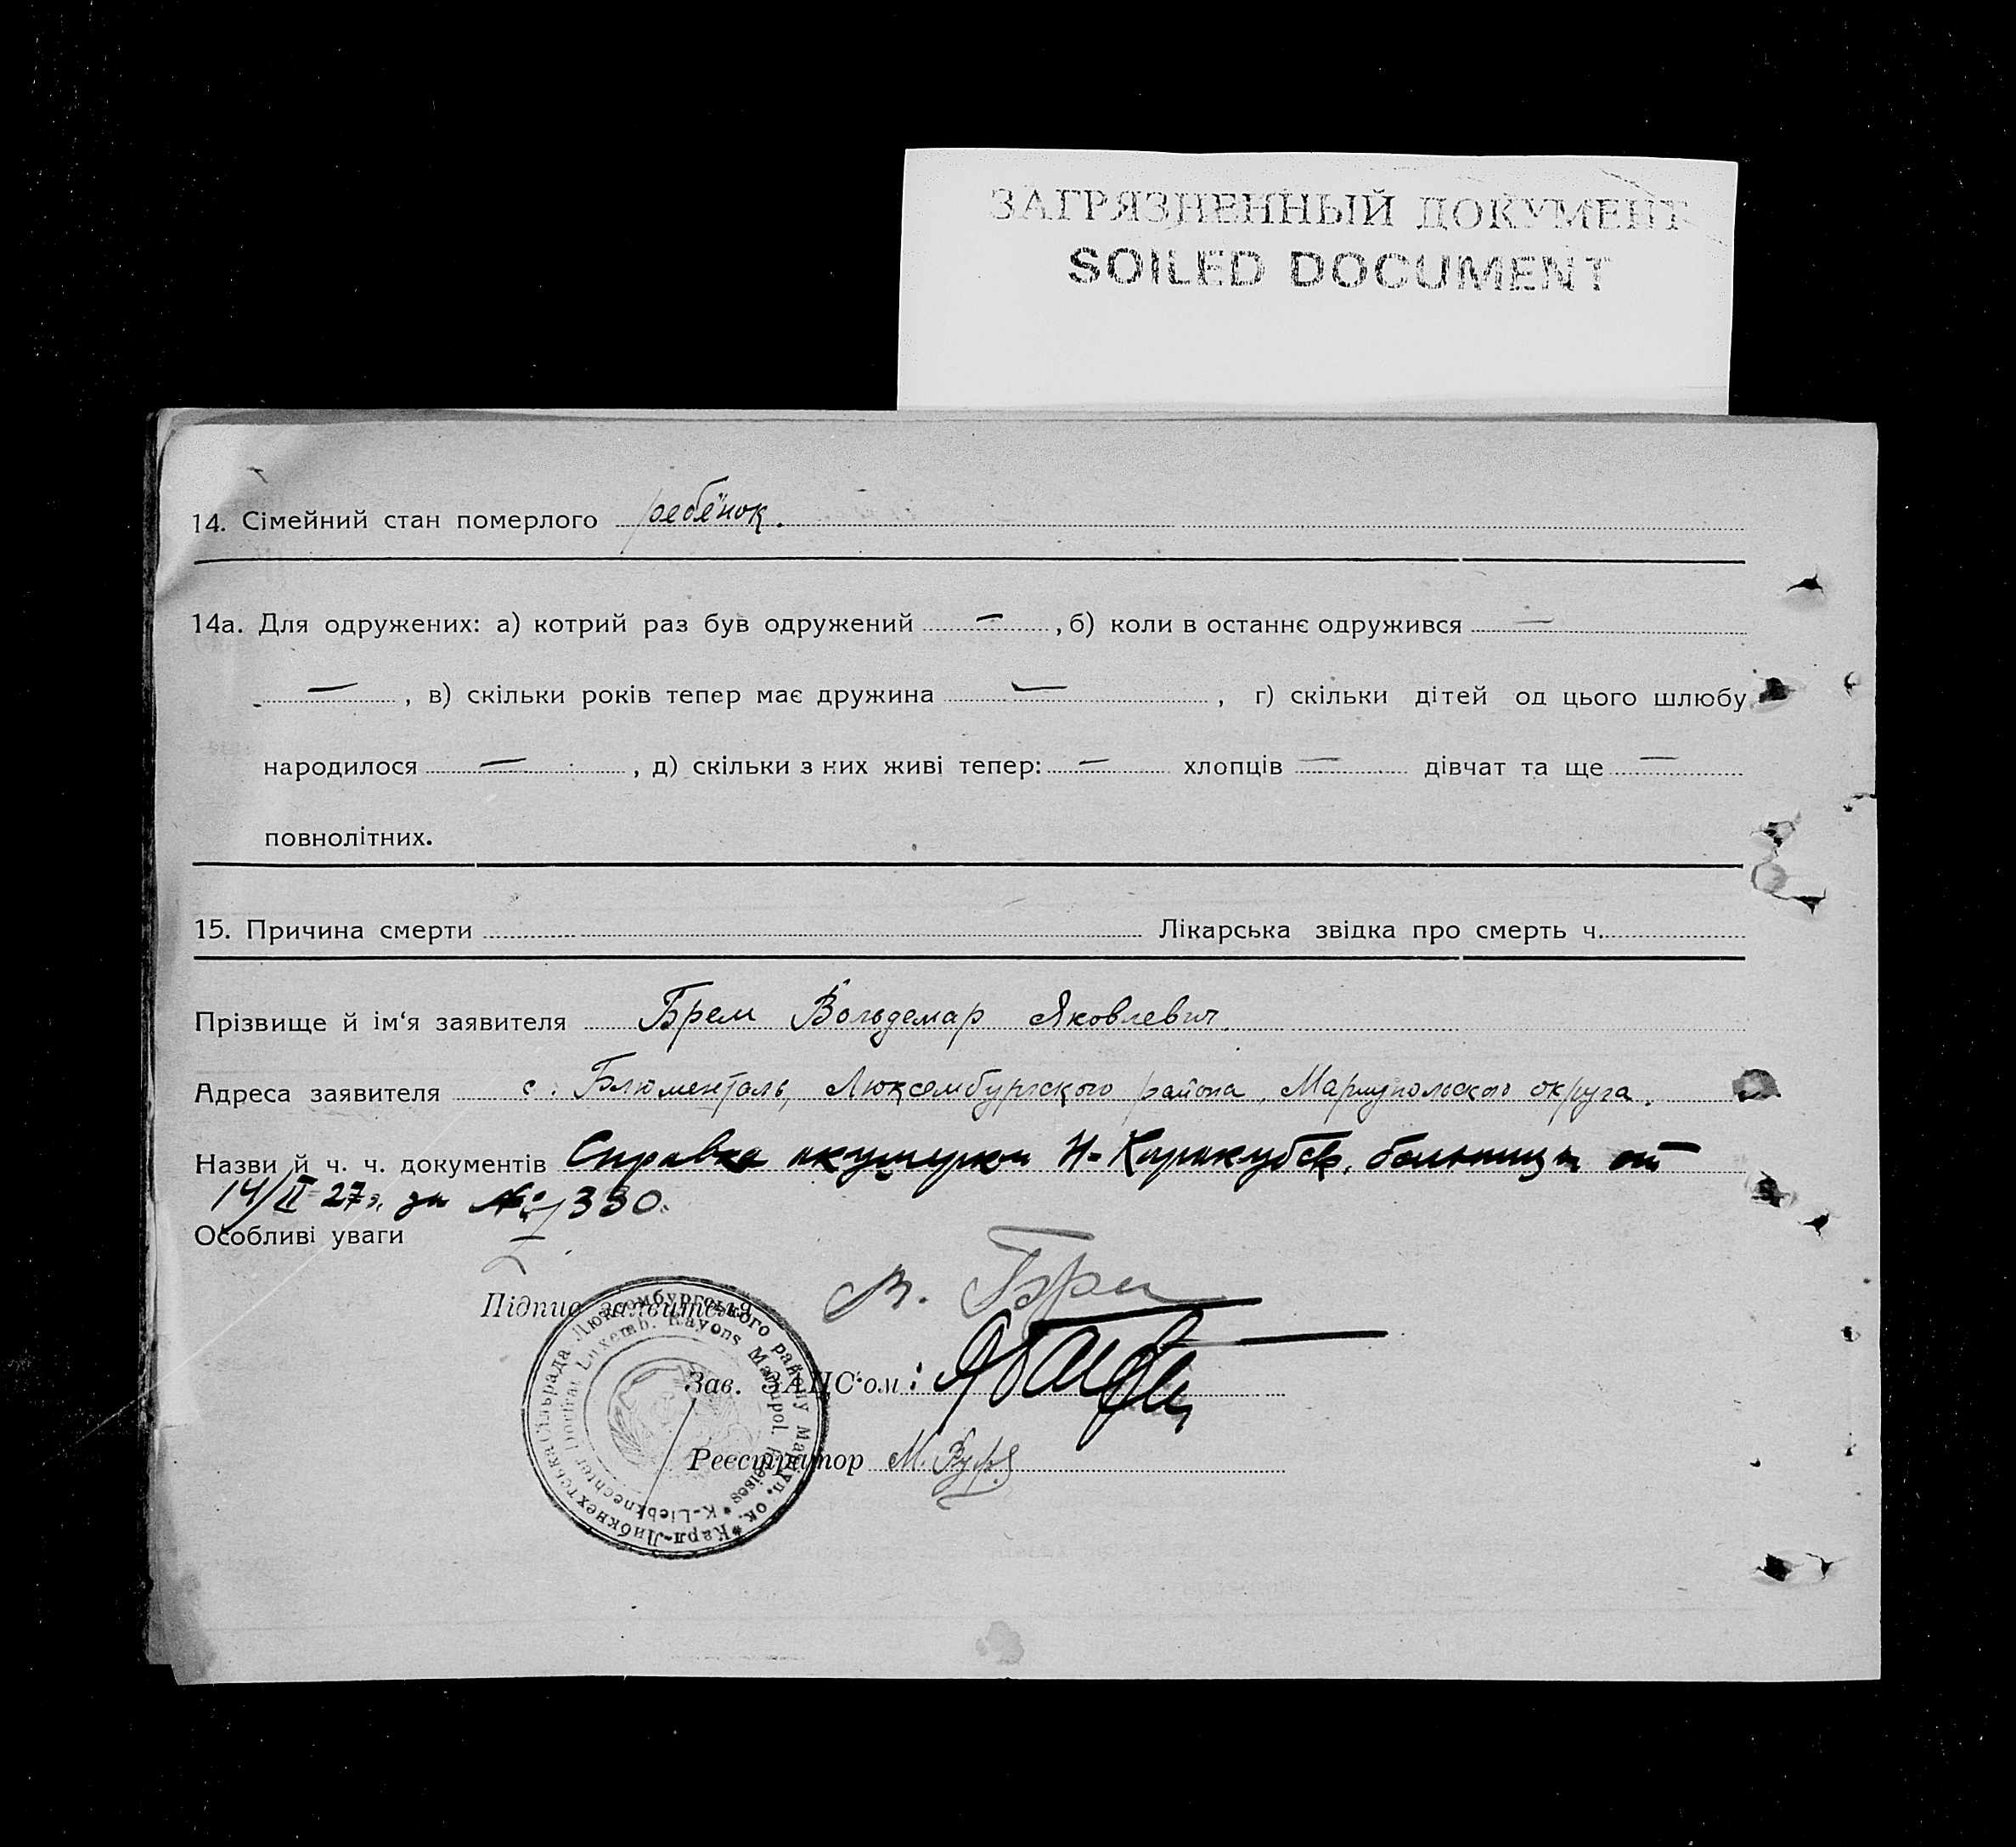 ЗАГРЯЗНЕННЫЙ ДОКУМЕНТ
SOILED DOCUMENT
14. Сімейний стан померлого ребёнок.
14а. Для одружених: а) котрий раз був одружений —, б) коли в останнє одружився —
—, в) скільки років тепер має дружина —, г) скільки дітей од цього шлюбу
народилося —, д) скільки з них живі тепер: — хлопців — дівчат та ще —
повнолітних.
15. Причина смерти Лікарська звідка про смерть ч.
Прізвище й ім‘я заявителя Брем Вольдемар Яковлевич.
Адреса заявителя с. Блюменталь, Люксембургского района, Мариупольского округа.
Назви й ч. ч. документів Справка акушерки Н-Каракубск. больницы от
14/II-27г. за № 1330.
Особливі уваги —
Підпис заявителя В. Брем
Зав. ЗАЦС‘ом:
Реєстратор М.
Карл-Либкнехтська Сільрада Люксембургського району Маріуп. ок.
K-Liebknechter Dorfrat Luxemb. Rayons Mariupol. Kreises